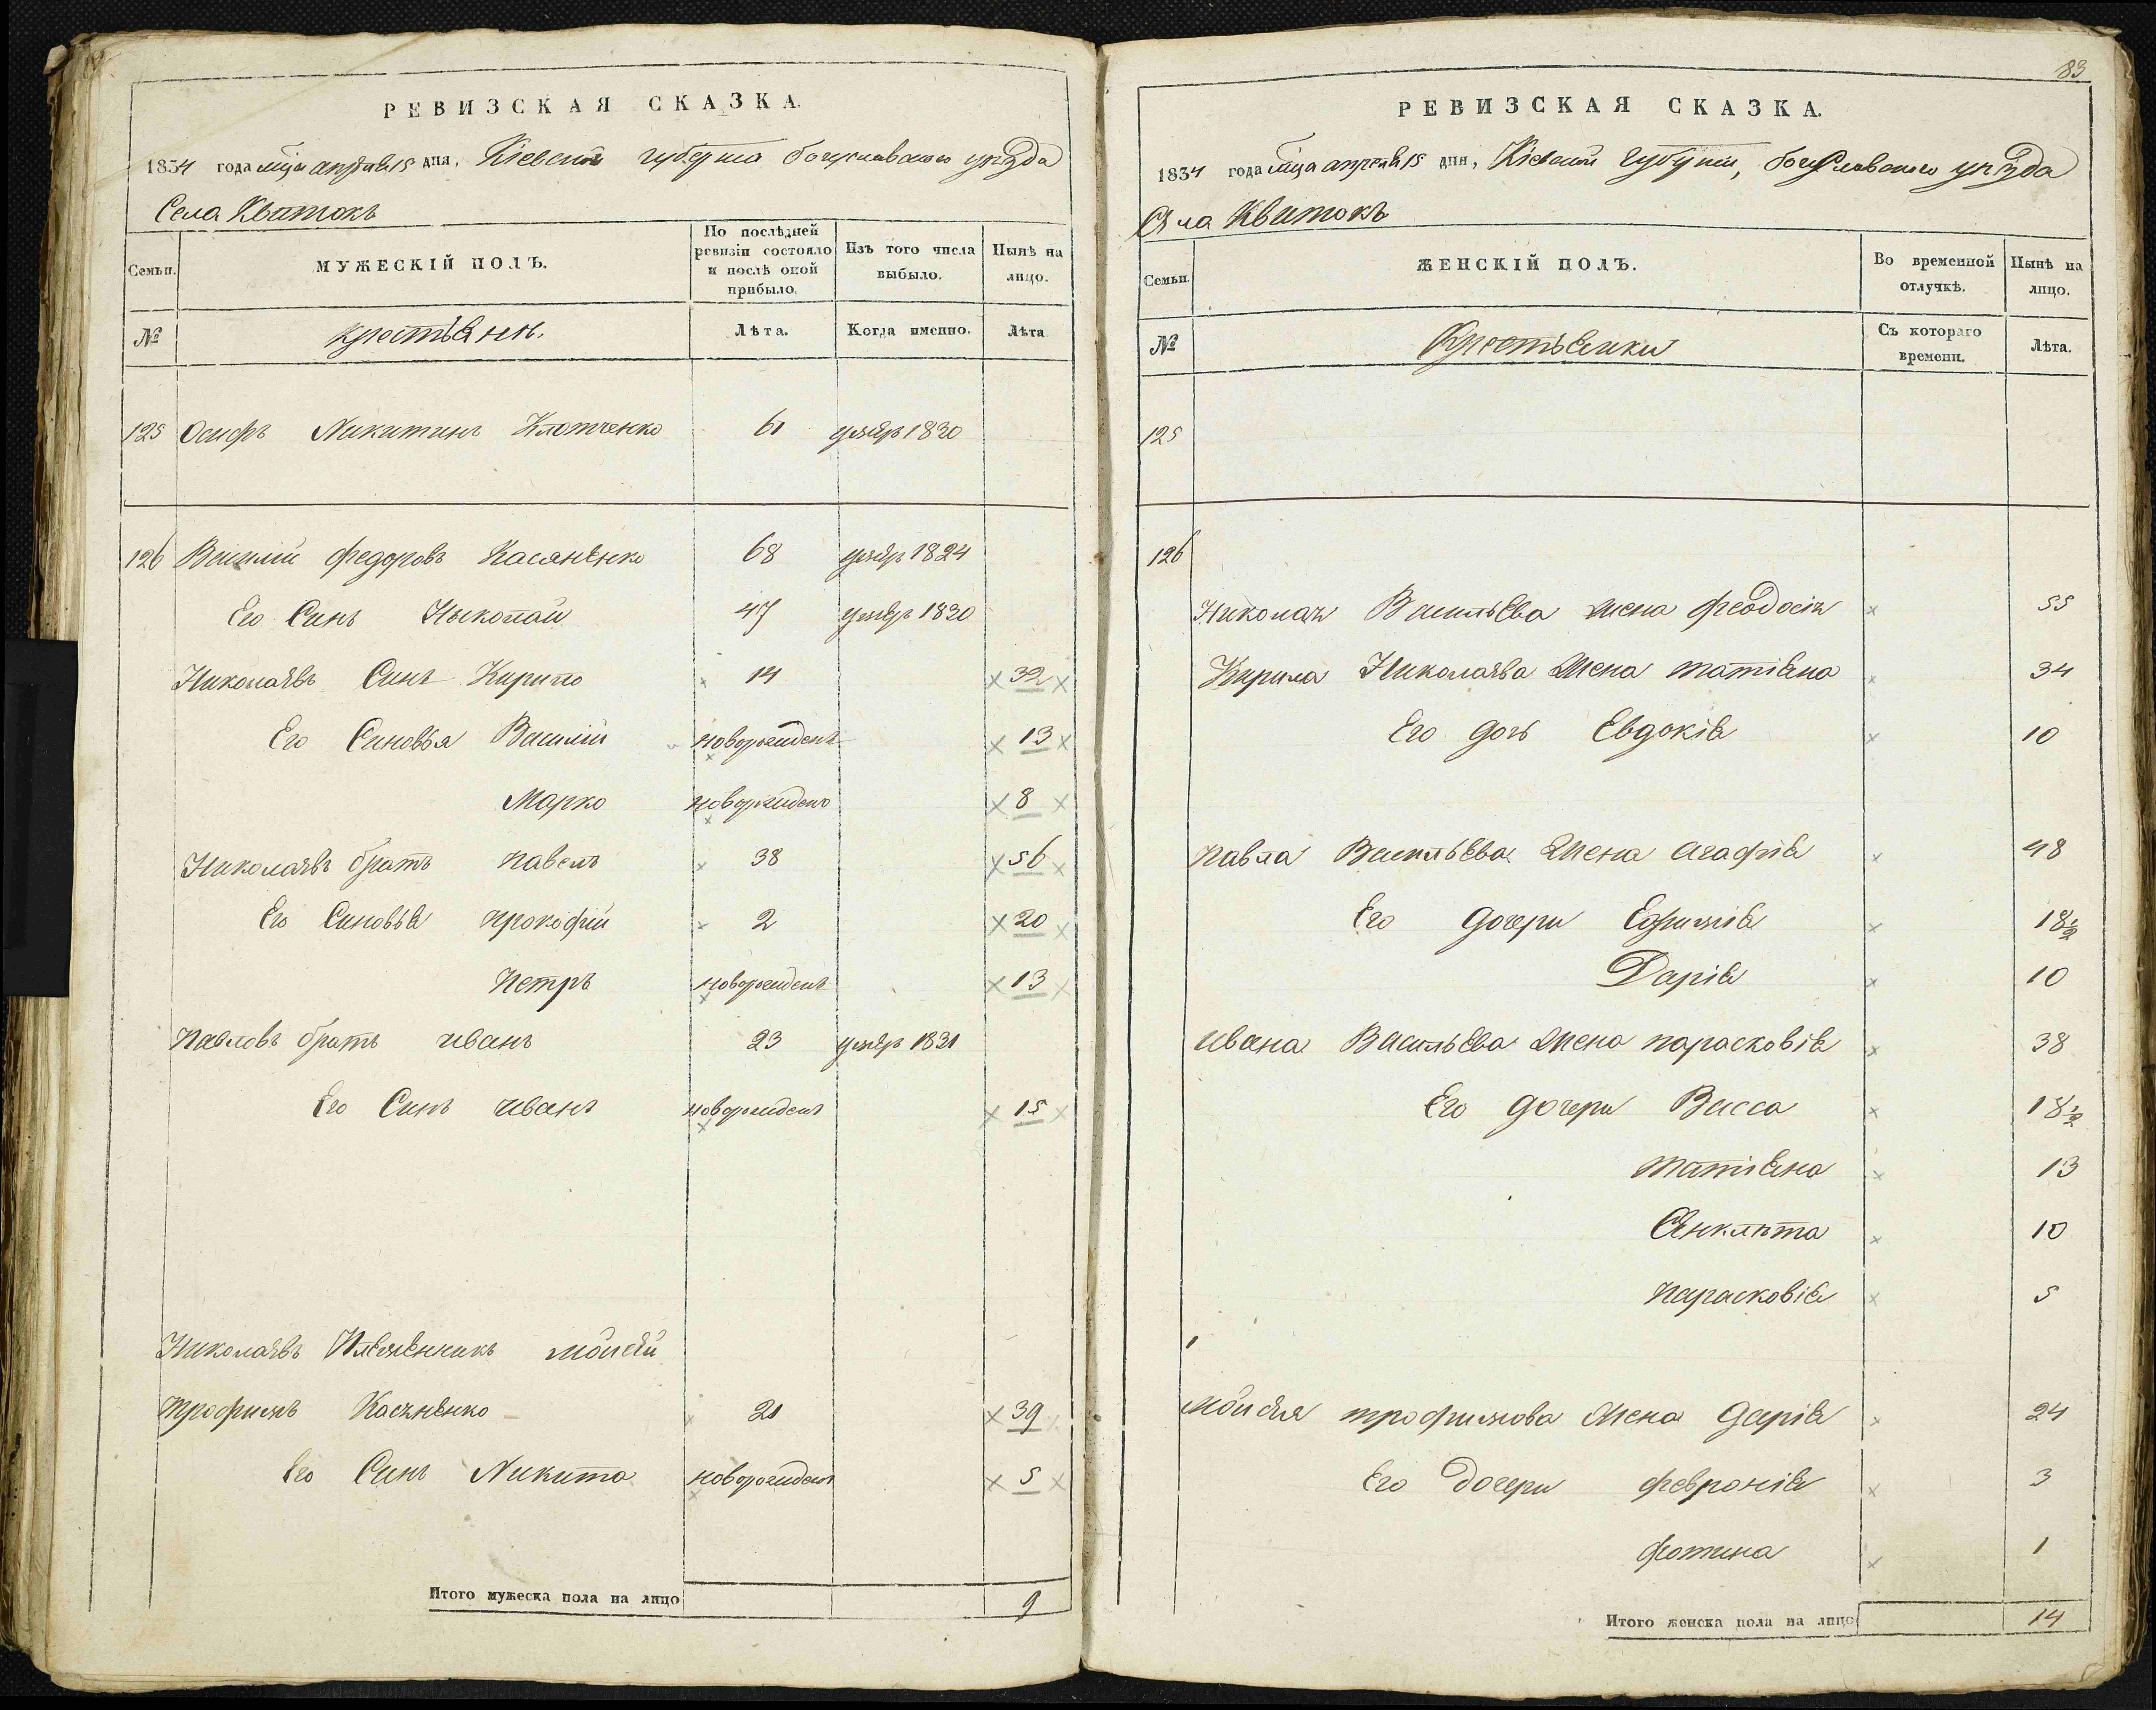 РЕВИЗСКАЯ СКАЗКА.
1834 года мца апреля 15 дня, Кіевской губерніи богуславского уезда
Села Квитокъ
Семьи. МУЖЕСКІЙ ПОЛЪ. По послѣдней ревизіи состояло и послѣ оной прибыло. Изъ того числа выбыло. Нынѣ на лицо.
№ крестьяне. Лѣта. Когда именно. Лѣта
125 Осифъ Никитинъ Клотченко 61 умѣръ 1830
126 Василій федоровъ Касяненко 68 умѣръ 1824
Его Синъ Николай 47 умѣръ 1830
Николаевъ Синъ Кирило 14 32
Его Синовья Василій новорожденъ 13
Марко новорожденъ 8
Николаевъ братъ павелъ 38 56
Его Синовья прокофій 2 20
петръ новорожденъ 13
павловъ братъ иванъ 23 умѣръ 1831
Его Синъ иванъ новорожденъ 15
Николаевъ племенникъ мойсей
трофимъ Касяненко 21 39
Его Синъ Никита новорожденъ 5
Итого мужеска пола на лицо 9
83
РЕВИЗСКАЯ СКАЗКА.
1834 года мца апреля 15 дня, Кіевской губерніи, богуславского уезда
Села Квитокъ
Семьи. ЖЕНСКІЙ ПОЛЪ. Во временной отлучкѣ. Нынѣ на лицо.
№ Крестьянки Съ котораго времени. Лѣта.
125
126
Николая Васильева жена феодосія 55
Кирила Николаева жена татіяна 34
Его дочь Евдокія 10
павла Васильева жена агафія 48
Его дочери Ефимія 18½
Дарія 10
ивана Васильева жена парасковія 38
Его дочери Васса 18½
татіяна 13
Анклета 10
парасковія 5
мойсея трофимова жена дарія 24
Его дочери февронія 3
фотина 1
Итого женска пола на лицо 14